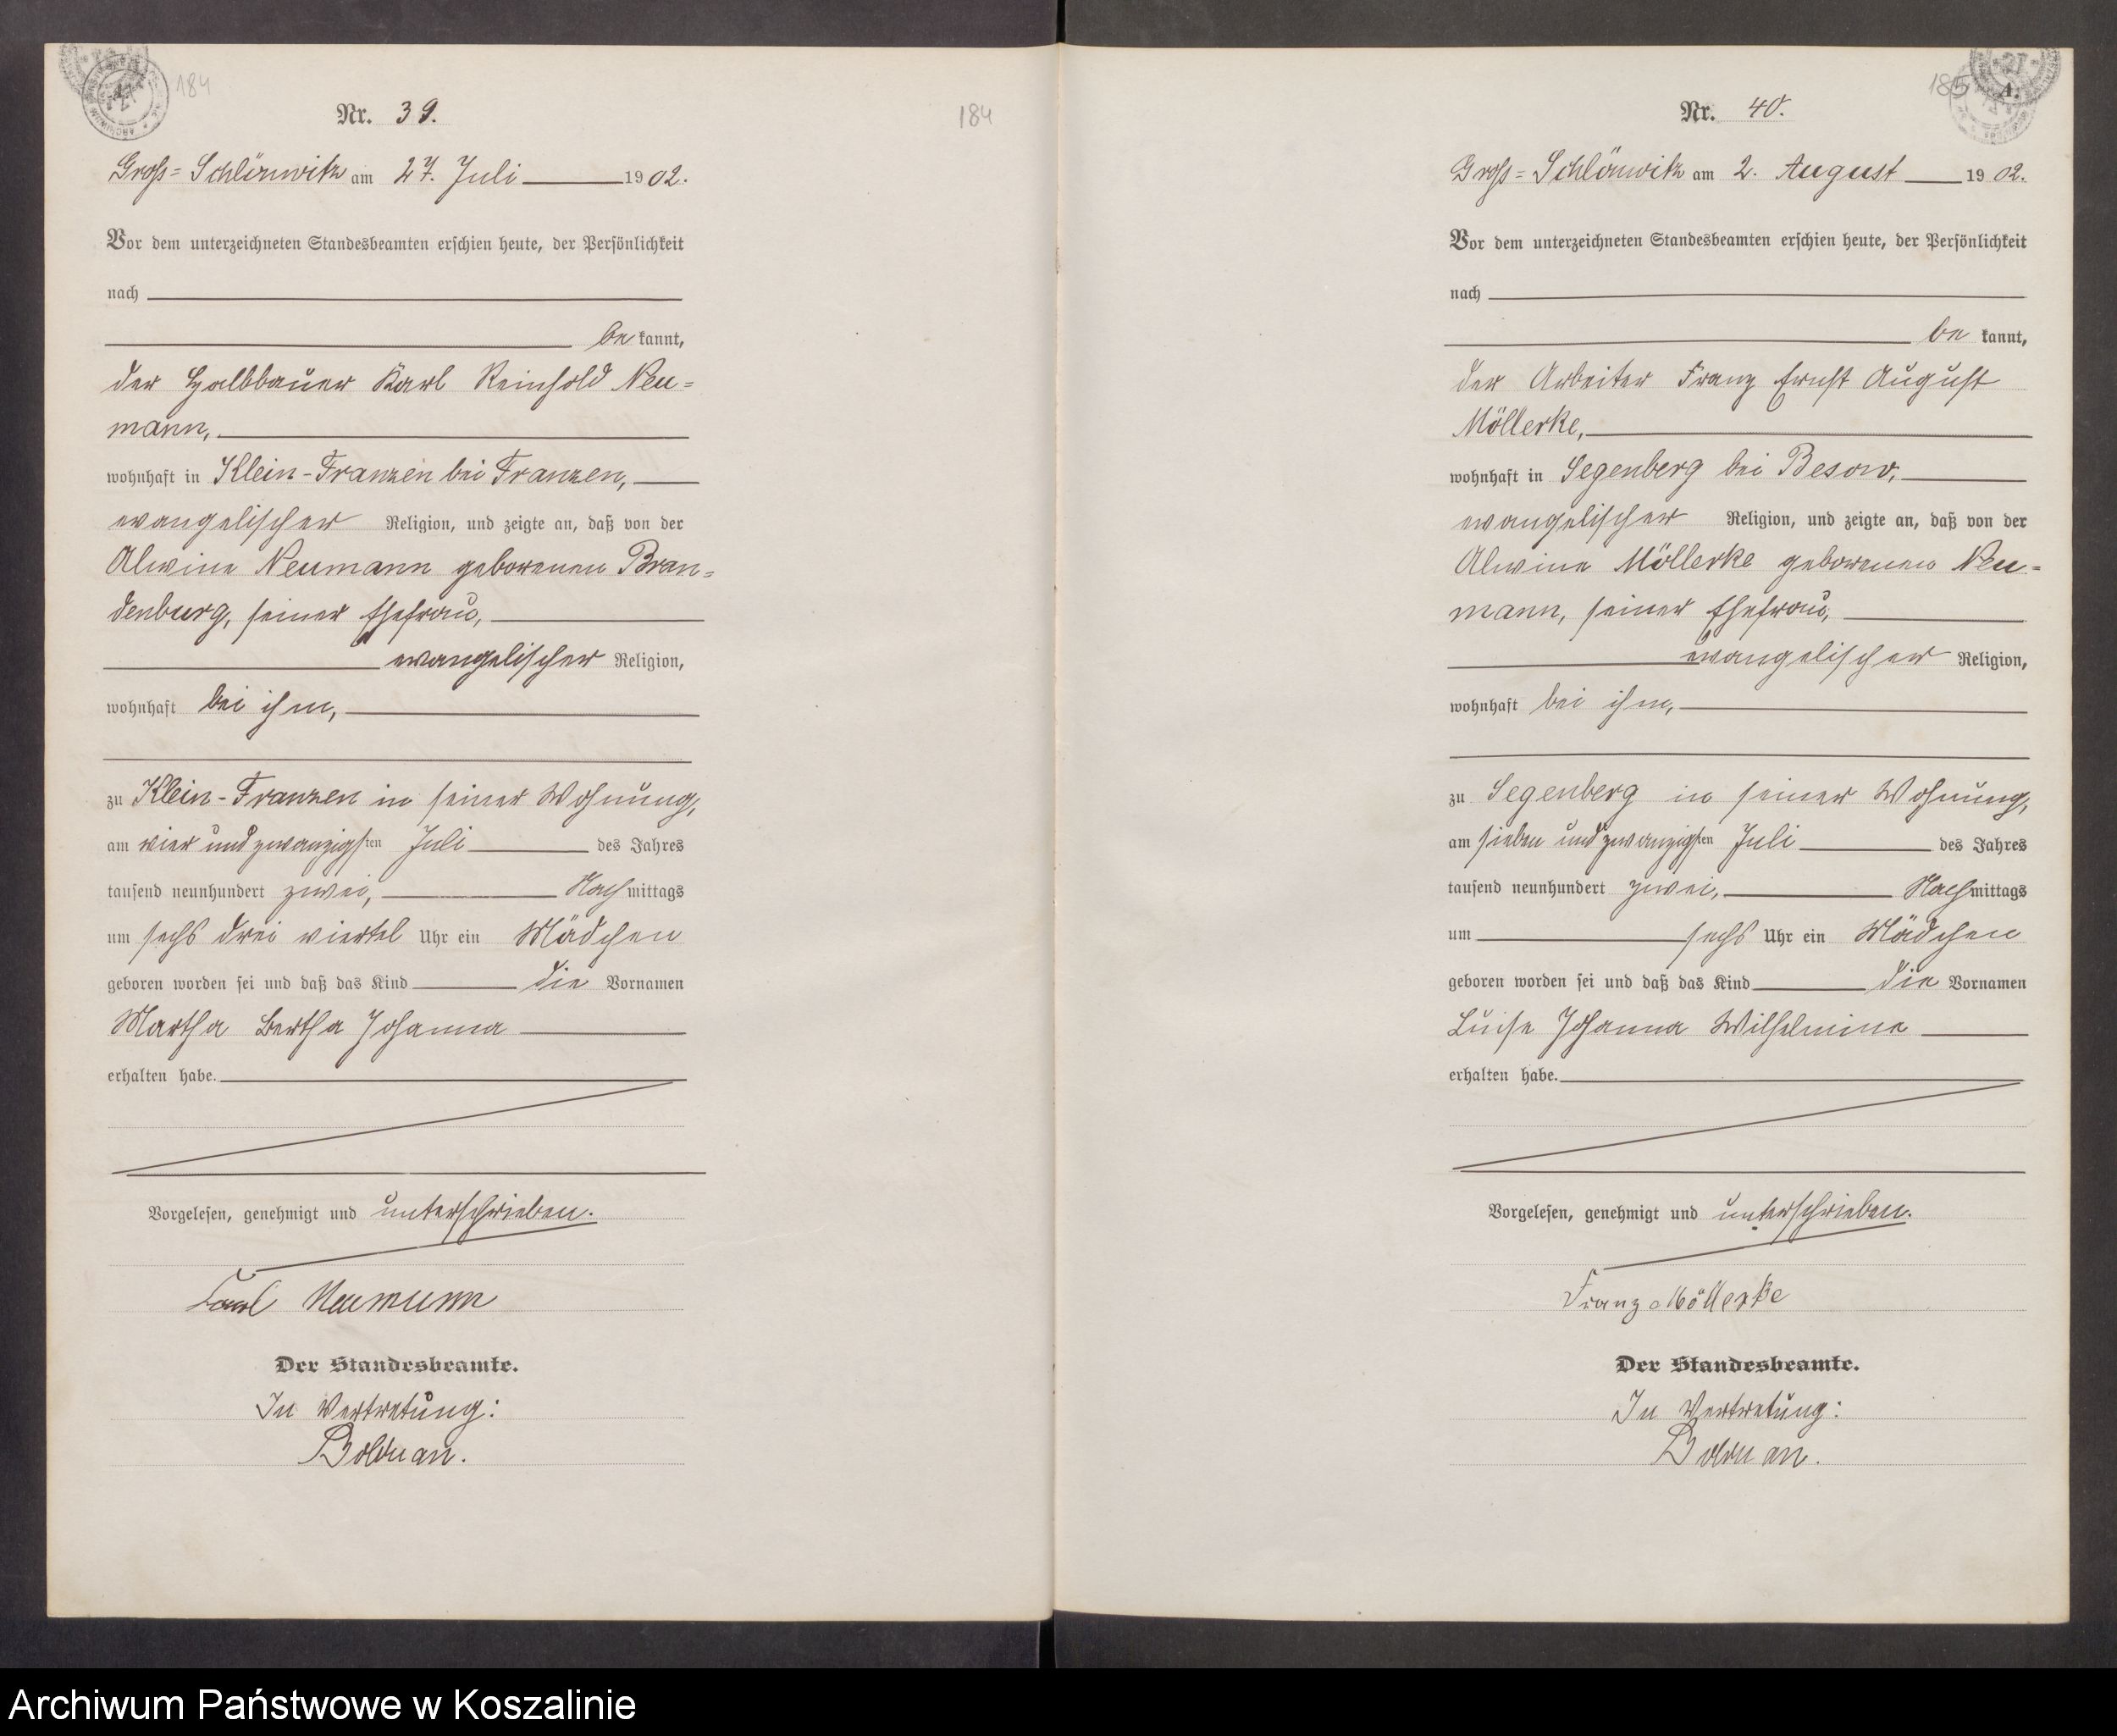 184
Nr. 39.
184
Groß=Schlönwitz am 27. Juli 1902.
Vor dem unterzeichneten Standesbeamten erschien heute, der Persönlichkeit
nach
be kannt,
der Halbbauer Karl Reinhold Neu=
mann,
wohnhaft in Klein-Franzen bei Franzen,
evangelischer Religion, und zeigte an, daß von der
Alwine Neumann geborenen Bran=
denburg, seiner Ehefrau,
evangelischer Religion,
wohnhaft bei ihm,
zu Klein-Franzen in seiner Wohnung,
am vier und zwanzigsten Juli des Jahres
tausend neunhundert zwei, Nachmittags
um sechs drei viertel Uhr ein Mädchen
geboren worden sei und daß das Kind die Vornamen
Martha Bertha Johanna
erhalten habe.
Vorgelesen, genehmigt und unterschrieben.
Karl Neumann
Der Standesbeamte.
In Vertretung:
Bolduan.
185
A.
Nr. 40.
Groß=Schlönwitz am 2. August 1902.
Vor dem unterzeichneten Standesbeamten erschien heute, der Persönlichkeit
nach
be kannt,
der Arbeiter Franz Ernst August
Möllerke,
wohnhaft in Segenberg bei Besow,
evangelischer Religion, und zeigte an, daß von der
Alwine Möllerke geborenen Neu=
mann, seiner Ehefrau,
evangelischer Religion,
wohnhaft bei ihm,
zu Segenberg in seiner Wohnung,
am sieben und zwanzigsten Juli des Jahres
tausend neunhundert zwei, Nachmittags
um sechs Uhr ein Mädchen
geboren worden sei und daß das Kind die Vornamen
Luise Johanna Wilhelmine
erhalten habe.
Vorgelesen, genehmigt und unterschrieben.
Franz Möllerke
Der Standesbeamte.
In Vertretung:
Bolduan.
Archiwum Państwowe w Koszalinie